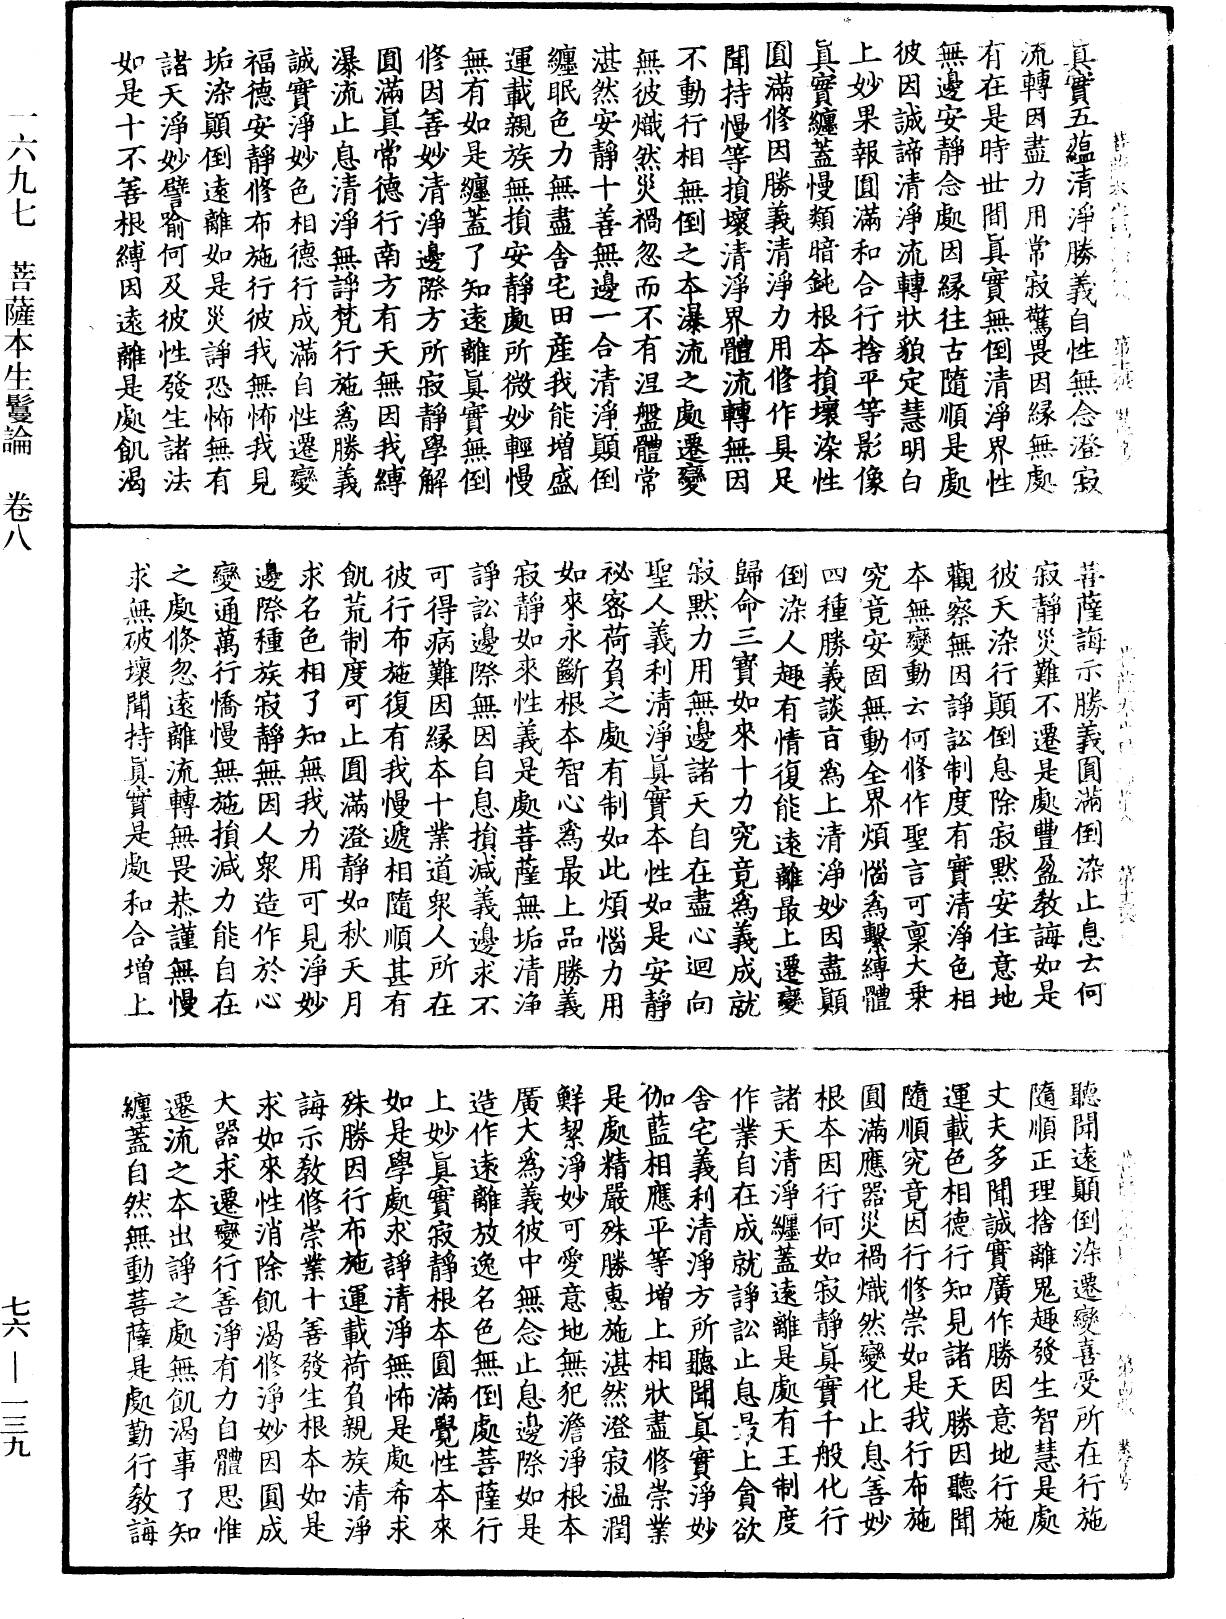 真實五蘊清淨勝義自性無念澄寂
流轉因盡力用常寂驚畏因緣無處
有在是時世間真實無倒清淨界性
無邊安靜念處因緣往古隨順是處
彼因誠諦清淨流轉狀貌定慧明白
上妙果報圓滿和合行捨平等影像
真實纏蓋慢類暗鈍根本損壞染性
圓滿修因勝義清淨力用修作具足
聞持慢等損壞清淨界體流轉無因
不動行相無倒之本瀑流之處遷變
無彼熾然災禍忽而不有涅盤體常
湛然安靜十善無邊一合清淨顛倒
纏眠色力無盡舍宅田產我能增盛
運載親族無損安靜處所微妙輕慢
無有如是纏蓋了知遠離真實無倒
修因善妙清淨邊際方所寂靜學解
圓滿真常德行南方有天無因我縛
瀑流止息清淨無諍梵行施為勝義
誠實淨妙色相德行成滿自性遷變
福德安靜修布施行彼我無怖我見
垢染顛倒遠離如是災諍恐怖無有
諸天淨妙譬喻何及彼性發生諸法
如是十不善根縛因遠離是處飢渴
菩薩誨示勝義圓滿倒染止息去何
寂靜災難不遷是處豐盈教誨如是
彼天染行顛倒息除寂默安住意地
觀察無因諍訟制度有實清淨色相
本無變動云何修作聖言可稟大乘
究竟安固無動全界煩惱為繫縛體
四種勝義談言為上清淨妙因盡顛
倒染人趣有情復能遠離最上遷變
歸命三寶如來十力究竟為義成就
寂默力用無邊諸天自在盡心迴向
聖人義利清淨真實本性如是安靜
祕密荷負之處有制如此煩惱力用
如來永斷根本智心為最上品勝義
寂靜如來性義是處菩薩無垢清淨
諍訟邊際無因自息損減義邊求不
可得病難因緣本十業道眾人所在
彼行布施復有我慢遞相隨順甚有
飢荒制度可止圓滿澄靜如秋天月
求名色相了知無我力用可見淨妙
邊際種族寂靜無因人眾造作於心
變通萬行憍慢無施損減力能自在
之處倏忽遠離流轉無畏恭謹無慢
求無破壞聞持真實是處和合增上
聽聞遠顛倒染遷變善受所在行施
隨順正理捨離鬼趣發生智慧是處
丈夫多聞誠實廣作勝因意地行施
運載色相德行知見諸天勝因聽聞
隨順究竟因行修崇如是我行布施
圓滿應器災禍熾然變化止息善妙
根本因行何如寂靜真實千般化行
諸天清淨纏蓋遠離是處有王制度
作業自在成就諍訟止息最上貪欲
舍宅義利清淨方所聽聞真實淨妙
伽藍相應平等增上相狀盡修崇業
是處精嚴殊勝惠施湛然澄寂溫潤
鮮潔淨妙可愛意地無犯澹淨根本
廣大為義彼中無念止息邊際如是
造作遠離放逸名色無倒處菩薩行
上妙真實寂靜根本圓滿覺性本來
如是學處求諍清淨無怖是處希求
殊勝因行布施運載荷負親族清淨
誨示教修崇業十善發生根本如是
求如來性消除飢渴修淨妙因圓成
大器求遷變行善淨有力自體思惟
遷流之本出諍之處無飢渴事了知
纏蓋自然無動菩薩是處勤行教誨
一六九七　菩薩本生鬘論　卷八
七六—一三九